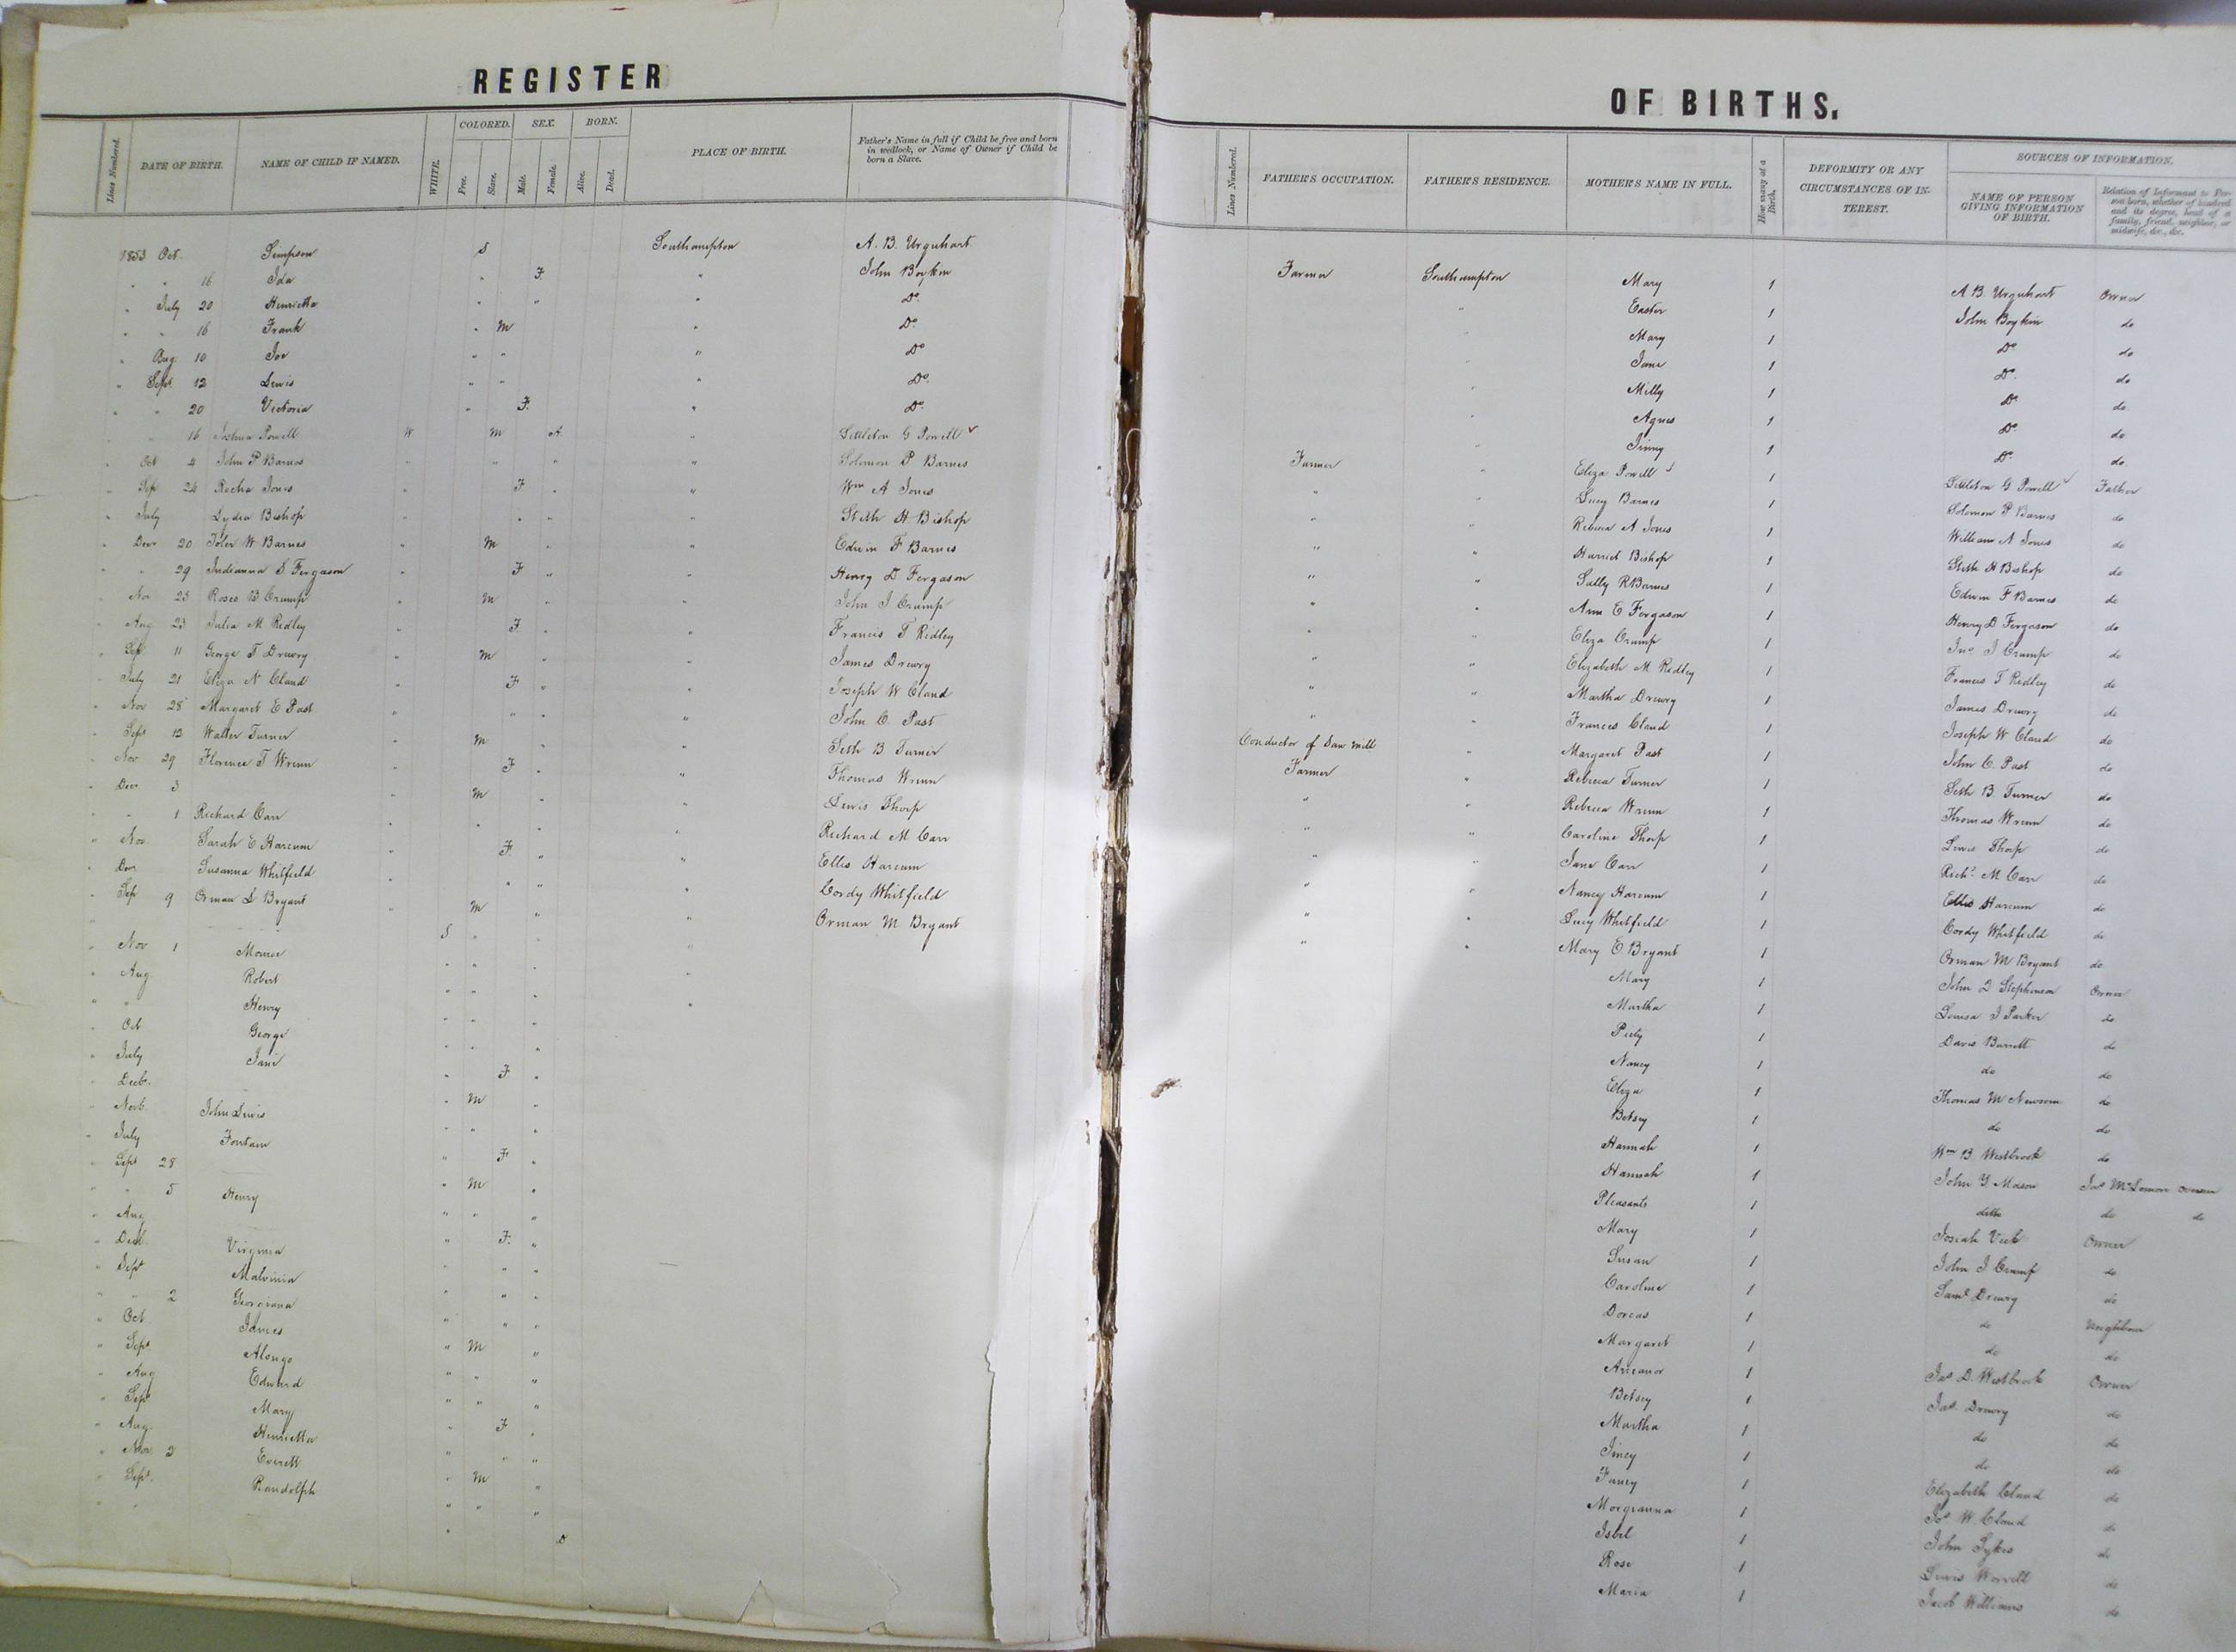 REGISTER
Lines Numbered. DATE OF BIRTH. NAME OF CHILD IF NAMED. WHITE. COLORED. Free. Slave. SEX. Male. Female. BORN. Alive. Dead. PLACE OF BIRTH. Father's Name in full if Child be free and born in wedlock, or Name of Owner if Child be born a Slave.
1853 Oct. Simpson S Southampton A. B. Urquhart
" " 16 Ida " F " John Boykin
" July 20 Henrietta " " " Do.
" " 16 Frank " M " Do.
" Aug 10 Joe " " " Do
" Sept 12 Lewis " " " Do.
" " 20 Victoria " F. " Do.
" " 16 Joshua Powell W M A " Littleton G Powell
" Oct 4 John P Barnes " " " " Solomon P Barnes
" Sep 24 Jones " F " " Wm A Jones
" July Lydia Bishop " " " " Stith H Bishop
" Decr 20 W Barnes " M " " Edwin F Barnes
" " 29 Indianna S Fergason " F " " Henry D Fergason
" Nov 23 Rosco B Crump " M " " John J Crump
" Aug 23 Julia M Ridley " F " " Francis T Ridley
" Sep 11 George T Drewry " M " " James Drewry
" July 21 Eliza N Claud " F " " Joseph W Claud
" Nov 28 Margaret E Past " " " " John C. Past
" Sept 13 Walter Turner " M " " Seth B Turner
" Nov 29 Florence T Wrenn " F " " Thomas Wrenn
" Decr 3 " M " " Lewis Thorp
" " 1 Richard Carr " " " " Richard M Carr
" Nov Sarah E Harcum " F. " " Ellis Harcum
" Dec Susanna Whitfield " " " " Cordy Whitfield
" Sep 9 Orman L Bryant " M " " Orman M Bryant
" S " " "
" Nov 1 " " " "
" Aug Robert " " " "
" " Henry " " "
" Oct George " " "
" July Jane " F "
" Decbr. " M "
" Novb. John Lewis " " "
" July " F "
" Sept 28 " M "
" " 5 Henry " " "
" Aug " F. "
" Decb. Virginia " " "
" Sept Malvinia " " "
" " 2 Georgiana " " "
" Oct James " M "
" Sept. Alonzo " " "
" Aug Edward " " "
" Sept Mary " F "
" Aug. Henrietta " " "
" Nov 2 Everett " M "
" Sept. Randolph " " "
" " " D
OF BIRTHS.
Lines Numbered. FATHER'S OCCUPATION. FATHER'S RESIDENCE. MOTHER'S NAME IN FULL. How many at a Birth. DEFORMITY OR ANY CIRCUMSTANCES OF INTEREST. SOURCES OF INFORMATION. NAME OF PERSON GIVING INFORMATION OF BIRTH. Relation of Informant to Person born, whether of kindred and its degree, head of a family, friend, neighbor, or midwife, &c., &c.
Farmer Southampton Mary 1 A. B. Urquhart Owner
" Easter 1 John Boykin do
" Mary 1 Do do
" Jane 1 Do. do
" Milly 1 Do. do
" Agnes 1 Do do
" 1 Do. do
Farmer " Eliza Powell 1 Littleton G Powell Father
" " Lucy Barnes 1 Solomon P Barnes do
" " Rebecca A Jones 1 William A Jones do
" " Harriet Bishop 1 Stith H Bishop do
" " Sally R Barnes 1 Edwin F Barnes do
" " Ann E Fergason 1 Henry D Fergason do
" " Eliza Crump 1 Jno. J Crump do
" " Elizabeth M Ridley 1 Francis T Ridley do
" " Martha Drewry 1 James Drewry do
" " Frances Claud 1 Joseph W Claud do
Conductor of Saw mill " Margaret Past 1 John C. Past do
Farmer " Rebecca Turner 1 Seth B. Turner do
" " Rebecca Wrenn 1 Thomas Wrenn do
" " Caroline Thorp 1 Lewis Thorp do
" " Jane Carr 1 Richd. M Carr do
" " Nancy Harcum 1 Ellis Harcum do
" " Lucy Whitfield 1 Cordy Whitfield do
" " Mary E Bryant 1 Orman M Bryant do
Mary 1 John Q Stephenson Owner
Martha 1 Louisa J Parker do
1 Davis Barrett do
Nancy 1 do do
Eliza 1 Thomas M Newsom do
Betsey 1 do do
Hannah 1 Wm B Westbrook do
Hannah 1 John Y Mason
Pleasants 1 ditto do do
Mary 1 Josiah Vick Owner
Susan 1 John J Crump do
Caroline 1 Saml Drewry do
Dorcas 1 do Neighbour
Margaret 1 do do
1 Jas D. Westbrook Owner
Betsey 1 Jas. Drewry do
Martha 1 do do
Jincy 1 do do
Fancy 1 Elizabeth Claud do
Morgianna 1 Jos W. Claud do
Isbel 1 John Sykes do
Rose 1 Lewis Worrell do
Maria 1 Jacob Williams do